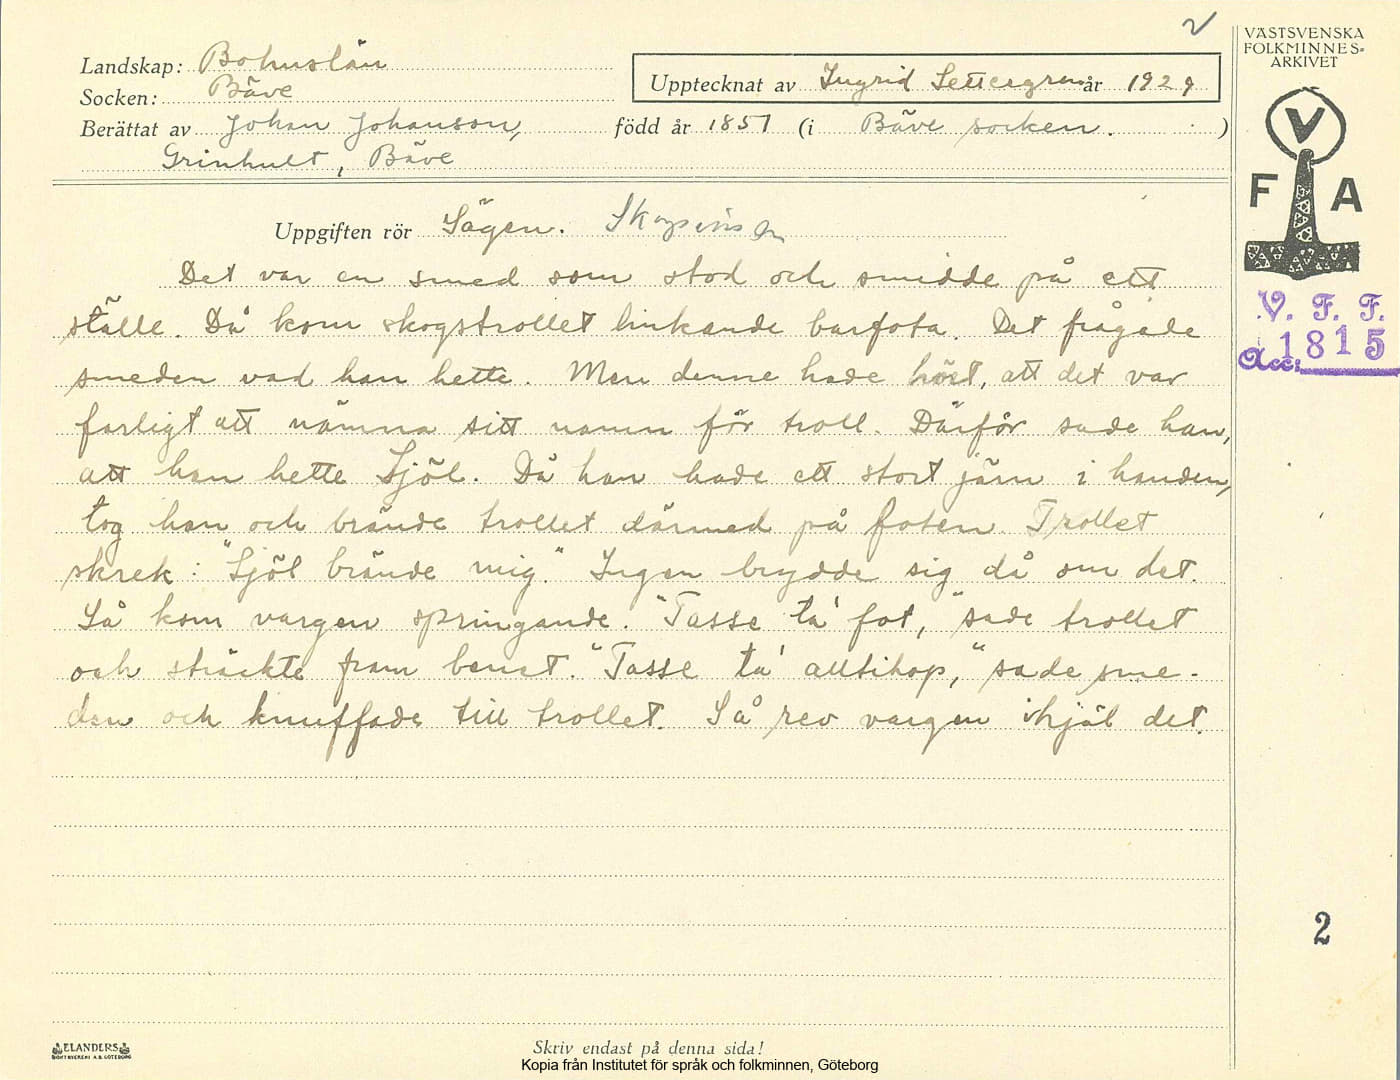 2
VÄSTSVENSKA
FOLKMINNES-
ARKIVET
V
F A
V. F. F.
Acc: 1815
Landskap: Bohuslän
Socken: Bäve
Upptecknat av Ingrid Settergren år 1929
Berättat av Johan Johanson, född år 1851 (i Bäve socken. )
Grinhult, Bäve
Uppgiften rör Sägen.
Det var en smed som stod och smidde på ett
ställe. Då kom skogstrollet linkande barfota. Det frågade
smeden vad han hette. Men denne hade hört, att det var
farligt att nämna sitt namn för troll. Därför sade han,
att han hette Sjöl. Då han hade ett stort järn i handen,
tog han och brände trollet därmed på foten. Trollet
skrek: "Sjöl brände mig." Ingen brydde sig då om det.
Så kom vargen springande. "Tasse ta' fot," sade trollet
och sträckte fram benet. "Tasse ta' alltihop," sade sme-
den och knuffade till trollet. Så rev vargen ihjäl det.
2
ELANDERS
BOKTRYCKERI A.B. GÖTEBORG
Skriv endast på denna sida!
Kopia från Institutet för språk och folkminnen, Göteborg